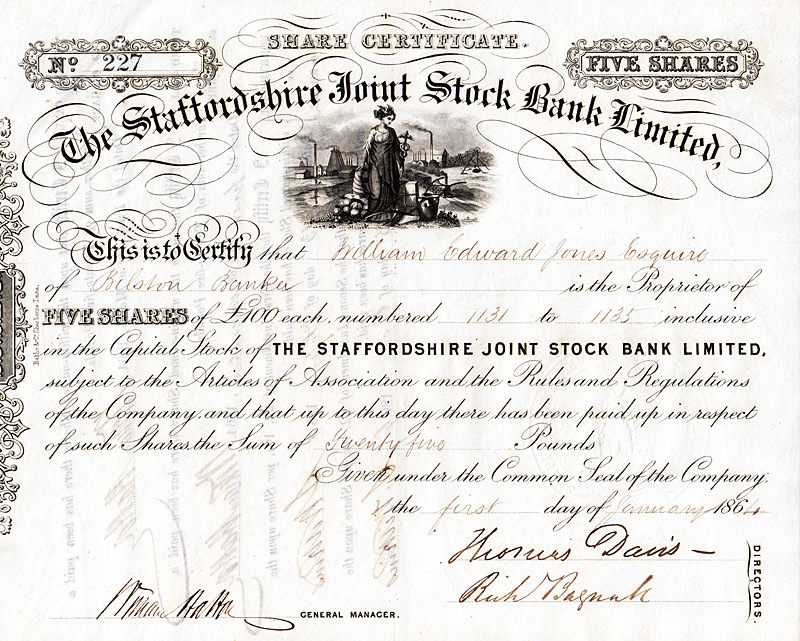 SHARE CERTIFICATE.
No. 227
FIVE SHARES
The Staffordshire Joint Stock Bank Limited,
This is to Certify that William Edward Jones Esquire
of Bilston Banker is the Proprietor of
FIVE SHARES of £100 each, numbered 1131 to 1135 inclusive
in the Capital Stock of THE STAFFORDSHIRE JOINT STOCK BANK LIMITED,
subject to the Articles of Association and the Rules and Regulations
of the Company, and that up to this day there has been paid up in respect
of such Shares, the Sum of Twenty five Pounds
Given under the Common Seal of the Company,
the first day of January 1864
Thomas Davis
Rich Bagnall
DIRECTORS.
William GENERAL MANAGER.